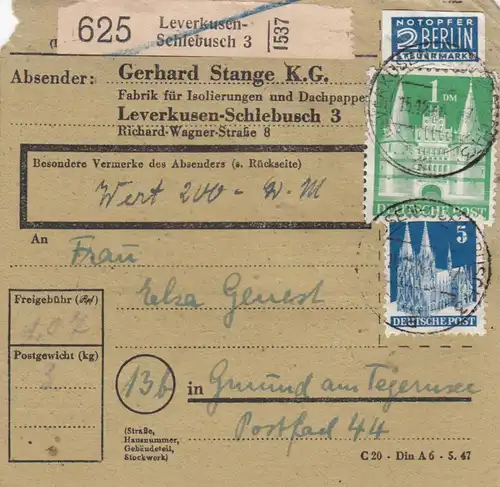 625
Leverkusen-
Schlebusch 3
1537
NOTOPFER
2 BERLIN
STEUERMARKE
Absender: Gerhard Stange K.G.
Fabrik für Isolierungen und Dachpappe
Leverkusen-Schlebusch 3
Richard-Wagner-Straße 8
1 DM
DEUTSCHE POST
Besondere Vermerke des Absenders (s. Rückseite)
Wert 200
An
Frau
Elsa Genest
5
DEUTSCHE POST
Freigebühr
1,02
Postgewicht (kg)
3
13b
in Gmund am Tegernsee
Postfach 44
(Straße,
Hausnummer,
Gebäudeteil,
Stockwerk)
C 20 - Din A 6 - 5. 47